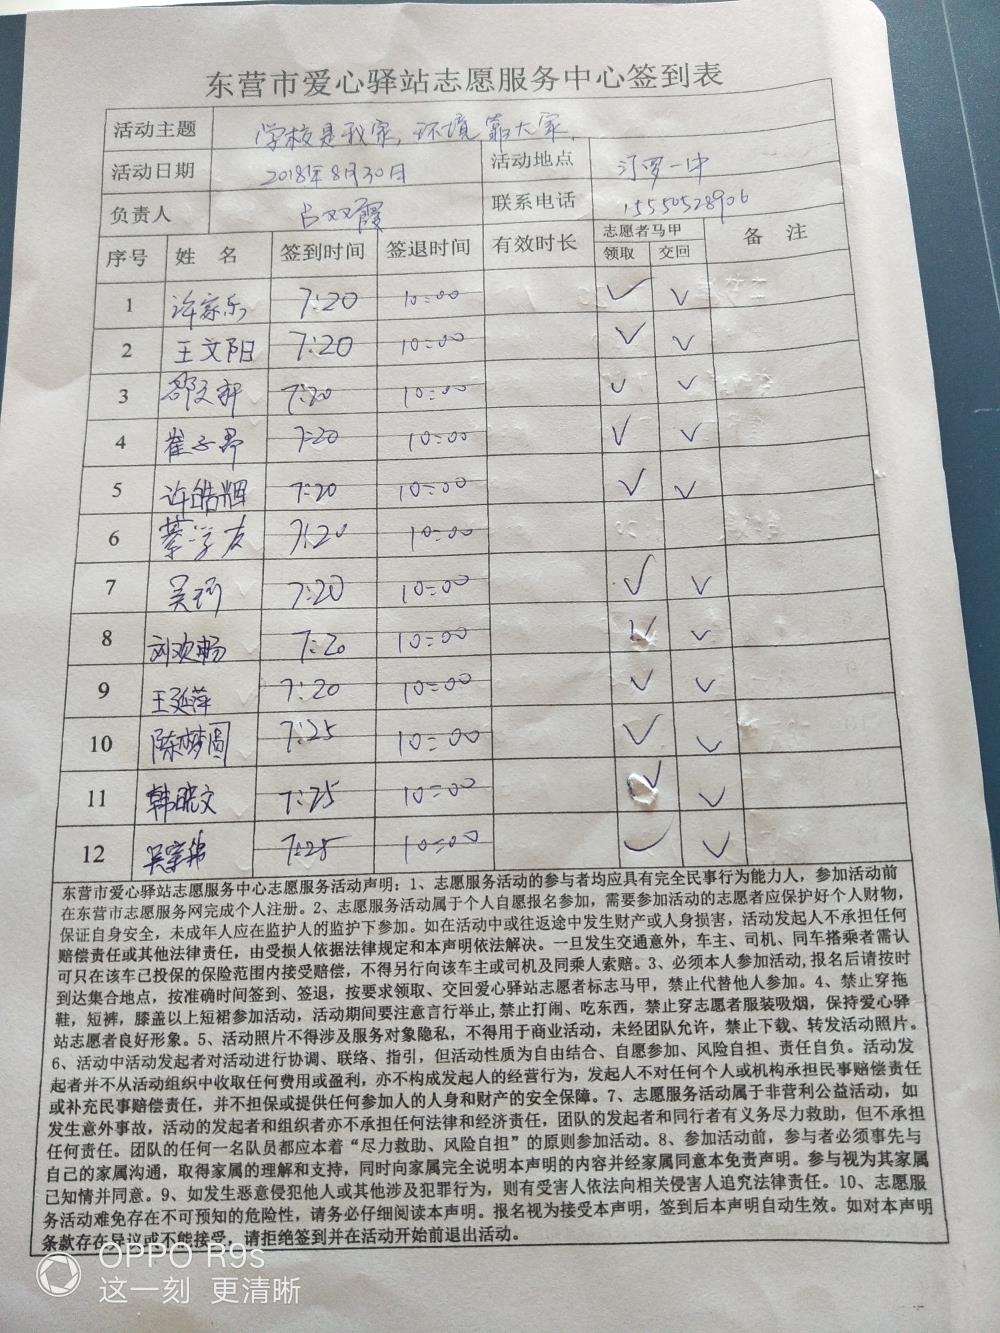 东营市爱心驿站志愿服务中心签到表
活动主题 学校是我家，环境靠大家。
活动日期 2018年8月30日 活动地点 汀罗一中
负责人 吕双霞 联系电话 15550528906
序号 姓 名 签到时间 签退时间 有效时长 志愿者马甲 备 注
领取 交回
1 许家乐 7:20 10:00 ✓ ✓
2 王文阳 7:20 10:00 ✓ ✓
3 邵文轩 7:20 10:00 ✓ ✓
4 崔子昂 7:20 10:00 ✓ ✓
5 许皓辉 7:20 10:00 ✓ ✓
6 綦学友 7:20 10:00
7 吴 7:20 10:00 ✓ ✓
8 刘欢畅 7:20 10:00 ✓ ✓
9 王延萍 7:20 10:00 ✓ ✓
10 陈梦圆 7:25 10:00 ✓ ✓
11 韩晓文 7:25 10:00 ✓ ✓
12 吴 7:25 10:00 ✓ ✓
东营市爱心驿站志愿服务中心志愿服务活动声明：1、志愿服务活动的参与者均应具有完全民事行为能力人，参加活动前
在东营市志愿服务网完成个人注册。2、志愿服务活动属于个人自愿报名参加，需要参加活动的志愿者应保护好个人财物，
保证自身安全，未成年人应在监护人的监护下参加。如在活动中或往返途中发生财产或人身损害，活动发起人不承担任何
赔偿责任或其他法律责任，由受损人依据法律规定和本声明依法解决。一旦发生交通意外，车主、司机、同车搭乘者需认
可只在该车已投保的保险范围内接受赔偿，不得另行向该车主或司机及同乘人索赔。3、必须本人参加活动,报名后请按时
到达集合地点，按准确时间签到、签退，按要求领取、交回爱心驿站志愿者标志马甲，禁止代替他人参加。4、禁止穿拖
鞋，短裤，膝盖以上短裙参加活动，活动期间要注意言行举止,禁止打闹、吃东西，禁止穿志愿者服装吸烟，保持爱心驿
站志愿者良好形象。5、活动照片不得涉及服务对象隐私，不得用于商业活动，未经团队允许，禁止下载、转发活动照片。
6、活动中活动发起者对活动进行协调、联络、指引，但活动性质为自由结合、自愿参加、风险自担、责任自负。活动发
起者并不从活动组织中收取任何费用或盈利，亦不构成发起人的经营行为，发起人不对任何个人或机构承担民事赔偿责任
或补充民事赔偿责任，并不担保或提供任何参加人的人身和财产的安全保障。7、志愿服务活动属于非营利公益活动，如
发生意外事故，活动的发起者和组织者亦不承担任何法律和经济责任，团队的发起者和同行者有义务尽力救助，但不承担
任何责任。团队的任何一名队员都应本着“尽力救助、风险自担”的原则参加活动。8、参加活动前，参与者必须事先与
自己的家属沟通，取得家属的理解和支持，同时向家属完全说明本声明的内容并经家属同意本免责声明。参与视为其家属
已知情并同意。9、如发生恶意侵犯他人或其他涉及犯罪行为，则有受害人依法向相关侵害人追究法律责任。10、志愿服
务活动难免存在不可预知的危险性，请务必仔细阅读本声明。报名视为接受本声明，签到后本声明自动生效。如对本声明
条款存在异议或不能接受，请拒绝签到并在活动开始前退出活动。
OPPO R9s
这一刻 更清晰